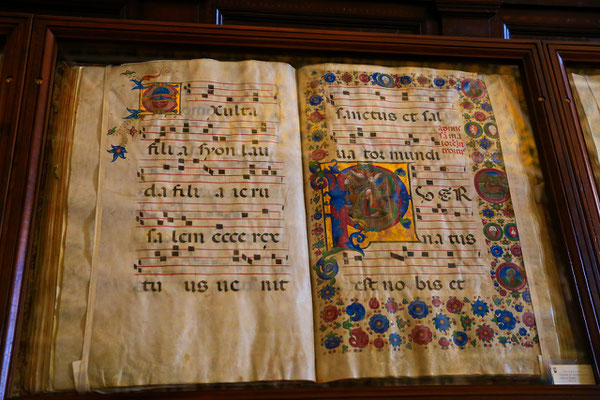 Exulta
fili a syon lau
da fili a ieru
sa lem ecce rex
tu us ue nit
sanctus et sal
ua tor mundi
PUER
natus
est nobis et